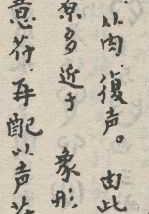 以肉。復声。由此
原多近于象形
意符.再配以声符